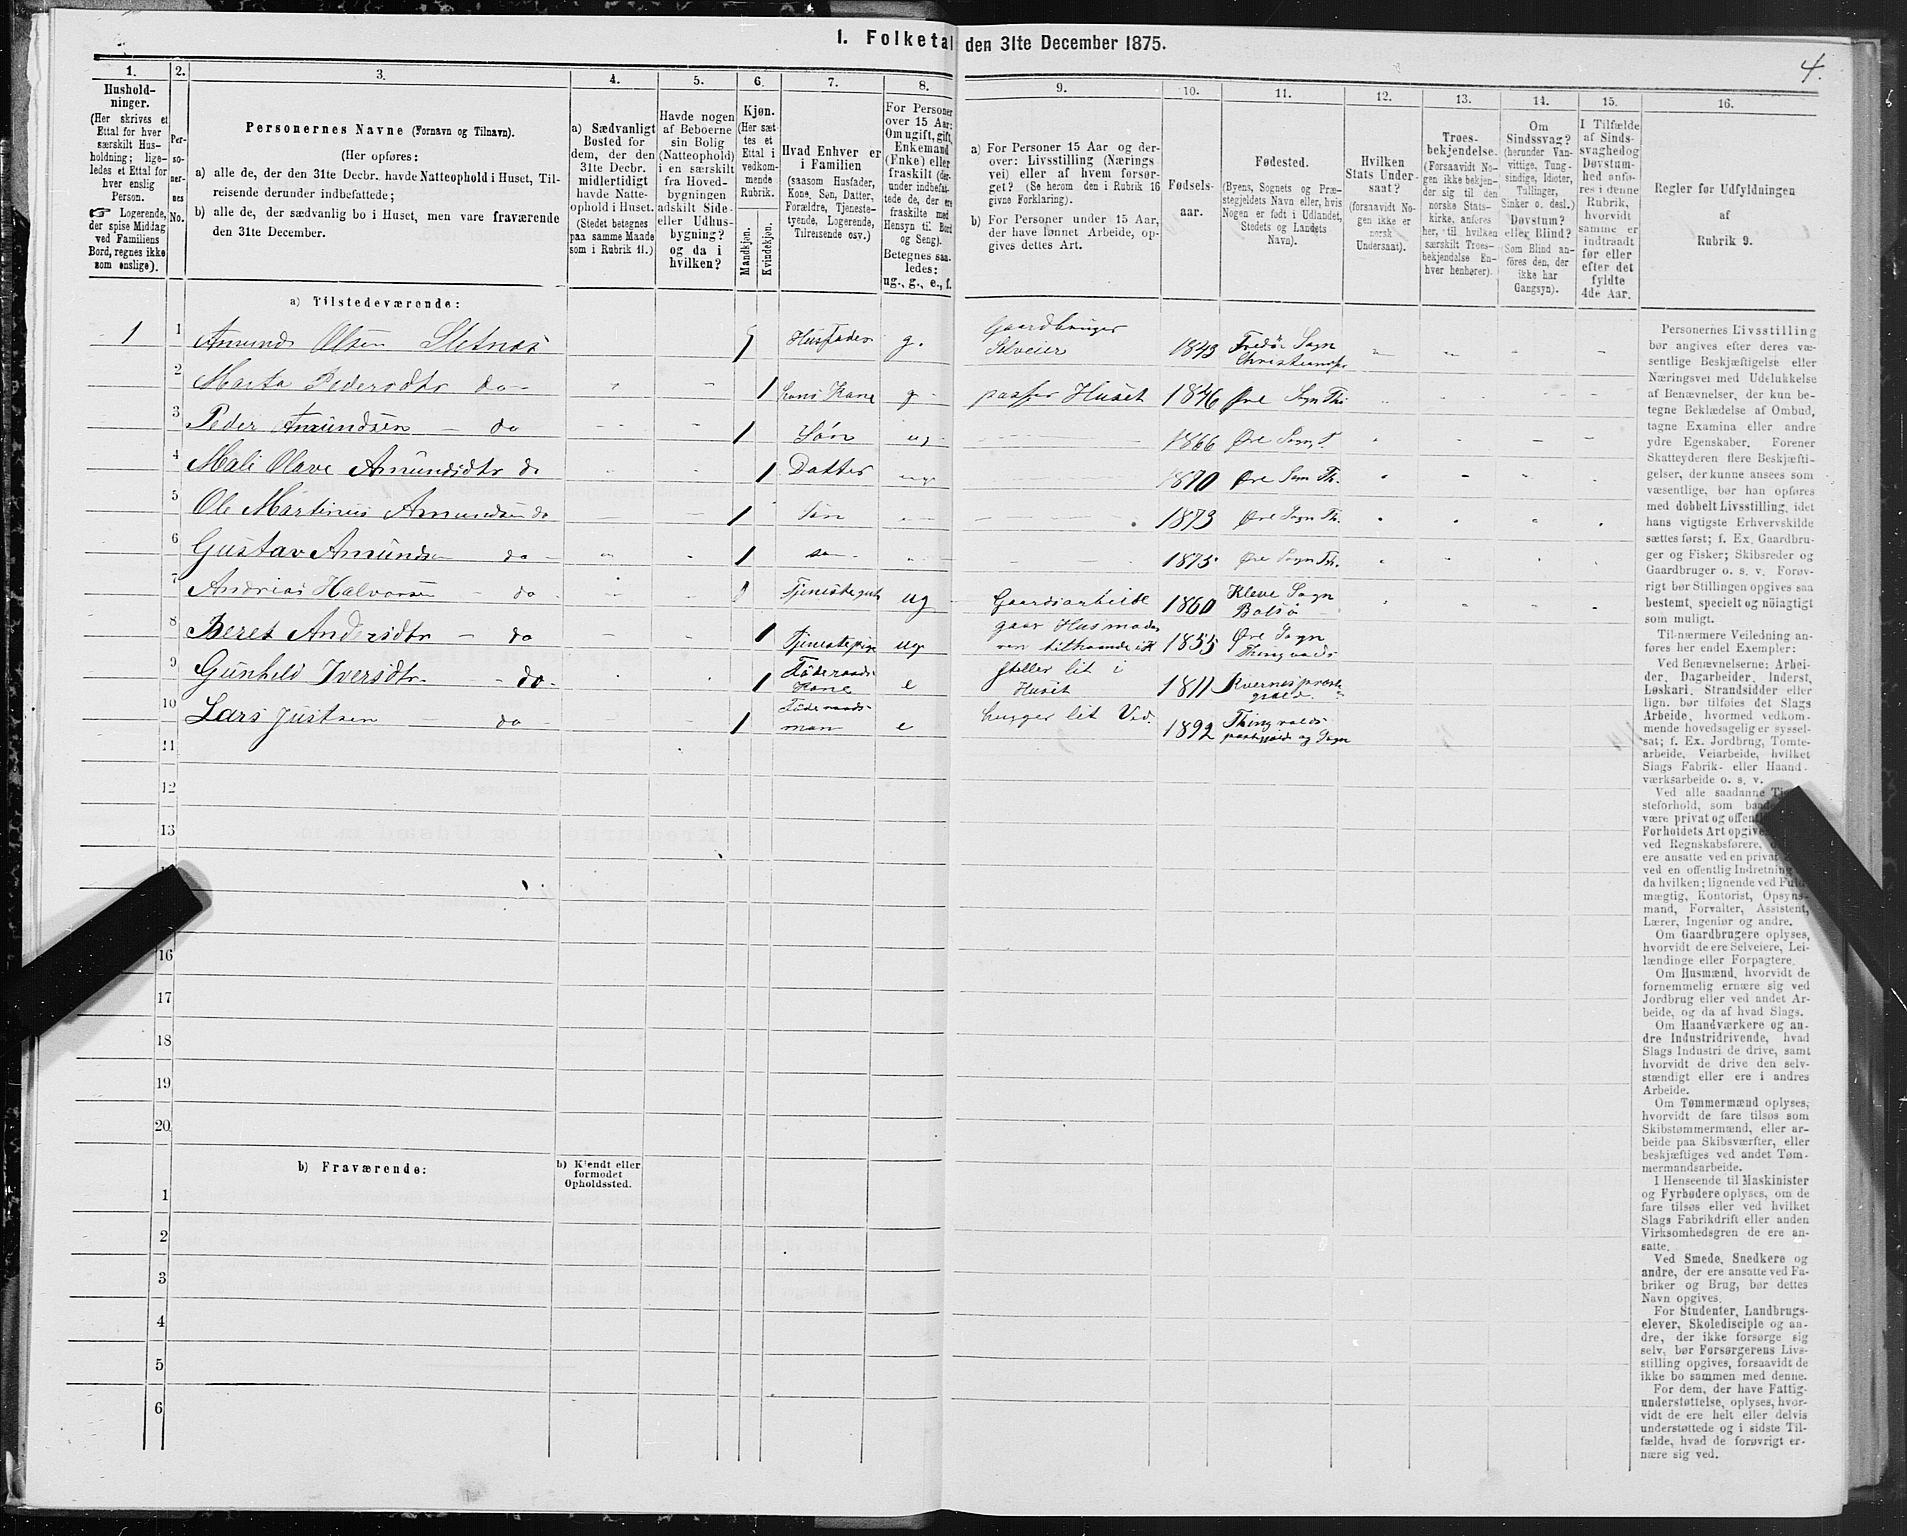 1. Folketal den 31te December 1875.
4.
1.
Hushold-
ninger.
(Her skrives et
Ettal for hver
særskilt Hus-
holdning; lige-
ledes et Ettal for
hver enslig
Person.
☞ Logerende,
der spise Middag
ved Familiens
Bord, regnes ikke
som enslige).
2.
Per-
so-
ner-
nes
No.
3.
Personernes Navne (Fornavn og Tilnavn).
(Her opføres:
a) alle de, der den 31te Decbr. havde Natteophold i Huset, Til-
reisende derunder indbefattede;
b) alle de, der sædvanlig bo i Huset, men vare fraværende
den 31te December.
4.
a) Sædvanligt
Bosted for
dem, der den
31te Decbr.
midlertidigt
havde Natte-
ophold i Huset.
(Stedet betegnes
paa samme Maade
som i Rubrik 11.)
5.
Havde nogen
af Beboerne
sin Bolig
(Natteophold)
i en særskilt
fra Hoved-
bygningen
adskilt Side-
eller Udhus-
bygning?
og da i
hvilken?
6.
Kjøn.
(Her sæt
tes et
Ettal i
vedkom-
mende
Rubrik.
Mandkjøn.
Kvindekjøn.
7.
Hvad Enhver er
i Familien
(saasom Husfader,
Kone, Søn, Datter,
Forældre, Tjeneste-
tyende, Logerende,
Tilreisende osv.)
8.
For Personer
over 15 Aar:
Om ugift, gift,
Enkemand
(Enke) eller
fraskilt (der-
under indbefat-
tede de, der ere
fraskilte med
Hensyn til Bord
og Seng).
Betegnes saa-
ledes:
ug., g., e., f.
9.
a) For Personer 15 Aar og der-
over: Livsstilling (Nærings
vei) eller af hvem forsør-
get? (Se herom den i Rubrik 16
givne Forklaring).
b) For Personer under 15 Aar,
der have lønnet Arbeide, op-
gives dettes Art.
10.
Fødsels-
aar.
11.
Fødested.
(Byens, Sognets og Præ-
stegjeldets Navn eller, hvis
Nogen er født i Udlandet,
Stedets og Landets
Navn).
12.
Hvilken
Stats Under-
saat?
(forsaavidt No-
gen ikke er
norsk
Undersaat).
13.
Troes-
bekjendelse.
(Forsaavidt No-
gen ikke bekjen-
der sig til den
norske Stats-
kirke, anføres
her, til hvilken
særskilt Troes-
bekjendelse En-
hver henhører).
14.
Om
Sindssvag?
(herunder Van-
vittige, Tung-
sindige, Idioter,
Tullinger,
Sinker o. desl.)
Døvstum?
eller Blind?
(Som Blind an-
føres den, der
ikke har
Gangsyn).
15.
I Tilfælde
af Sinds-
svaghed og
Døvstum-
hed anfø-
res i denne
Rubrik,
hvorvidt
samme er
indtraadt
før eller
efter det
fyldte
4de Aar.
16.
Regler for Udfyldningen
af
Rubrik 9.
a) Tilstedeværende:
1 1 Amund Olsen Sletnes 1 Husfader g. Gaardbruger Selveier 1843 Fredø Sogn
2 Marta Pedersdtr do 1 hans Kone g passer Huset 1846 Øre Sogn Th.
3 Peder Amundsen do 1 Søn ug 1866 Øre Sogn T.
4 Mali Olave Amundsdtr do 1 Datter ug 1870 Øre Sogn Th.
5 Ole Martinus Amundsen do 1 Søn 1873 Øre Sogn Th.
6 Gustav Amunds do 1 1875 Øre Sogn Th.
7 Andreas Halvorsen do 1 Tjenestegut ug Gaardsarbeide 1860 Kleve Sogn Bolsø
8 Beret Andersdtr do 1 Tjenestepige ug gaar Husmode ren tilhaande 1855 Øre Sogn Thingvolds
9 Gunhild Iversdtr do 1 Føderaads Kone e steller lit i Huset 1811 Kvernes præste gjeld
10 Lars Justsen do 1 Føderaads man e hugger lit Ved. 1892 Thingvolds og Sogn
11
12
13
16
17
18
19
20
b) Fraværende:
b) Kjendt eller
formodet
Opholdssted.
1
2
3
4
5
6
Personernes Livsstilling
bør angives efter deres væ-
sentlige Beskjæftigelse eller
Næringsvei med Udelukkelse
af Benævnelser, der kun be-
tegne Beklædelse af Ombud,
tagne Examina eller andre
ydre Egenskaber. Forener
Skatteyderen flere Beskjæfti-
gelser, der kunne ansees som
væsentlige, bør han opføres
med dobbelt Livsstilling, idet
hans vigtigste Erhvervskilde
sættes først; f. Ex. Gaardbru-
ger og Fisker; Skibsreder og
Gaardbruger o. s. v. Forøv-
rigt bør Stillingen opgives saa
bestemt, specielt og nöiagtigt
som muligt.
Til nærmere Veiledning an-
føres her endel Exempler:
Ved Benævnelserne: Arbei-
der, Dagarbeider, Inderst,
Løskari, Strandsidder eller
lign. bør tilføies det Slags
Arbeide, hvormed vedkom-
mende hovedsagelig er syssel-
sat; f. Ex. Jordbrug, Tomte-
arbeide, Veiarbeide, hvilket
Slags Fabrik- eller Haand-
værksarbeide o. s. v.
Ved alle saadanne
steforhold, som
være privat og
Forholdets Art
ved Regnskabsførere,
ere ansatte ved en privat
ved en offentlig Indretning
da hvilken; lignende ved Fuld-
mægtig, Kontorist, Opsyns-
mand, Forvalter, Assistent,
Lærer, Ingeniør og andre.
Om Gaardbrugere oplyses,
hvorvidt de ere Selveiere, Lei-
lændinge eller Forpagtere.
Om Husmænd, hvorvidt de
fornemmelig ernære sig ved
Jordbrug eller ved andet Ar-
beide, og da af hvad Slags.
Om Haandværkere og an-
dre Industridrivende, hvad
Slags Industri de drive, samt
hvorvidt de drive den selv-
stændigt eller ere i andres
Arbeide.
Om Tømmermænd oplyses,
hvorvidt de fare tilsøs som
Skibstømmermænd, eller ar-
beide paa Skibsværfter, eller
beskjæftiges ved andet Tøm-
mermandsarbeide.
I Henseende til Maskinister
og Fyrbødere oplyses, om de
fare tilsøs eller ved hvilket
Slags Fabrikdrift eller anden
Virksomhedsgren de ere an-
satte.
Ved Smede, Snedkere og
andre, der ere ansatte ved Fa-
briker og Brug, bør dettes
Navn opgives.
For Studenter, Landbrugs-
elever, Skoledisciple og an-
dre, der ikke forsørge sig
selv, bør Forsørgerens Livs-
stilling opgives, forsaavidt de
ikke bo sammen med denne.
For dem, der have Fattig-
understøttelse, oplyses, hvor-
vidt de ere helt eller delvis
understøttede og i sidste Til-
fælde, hvad de forøvrigt er-
nære sig ved.